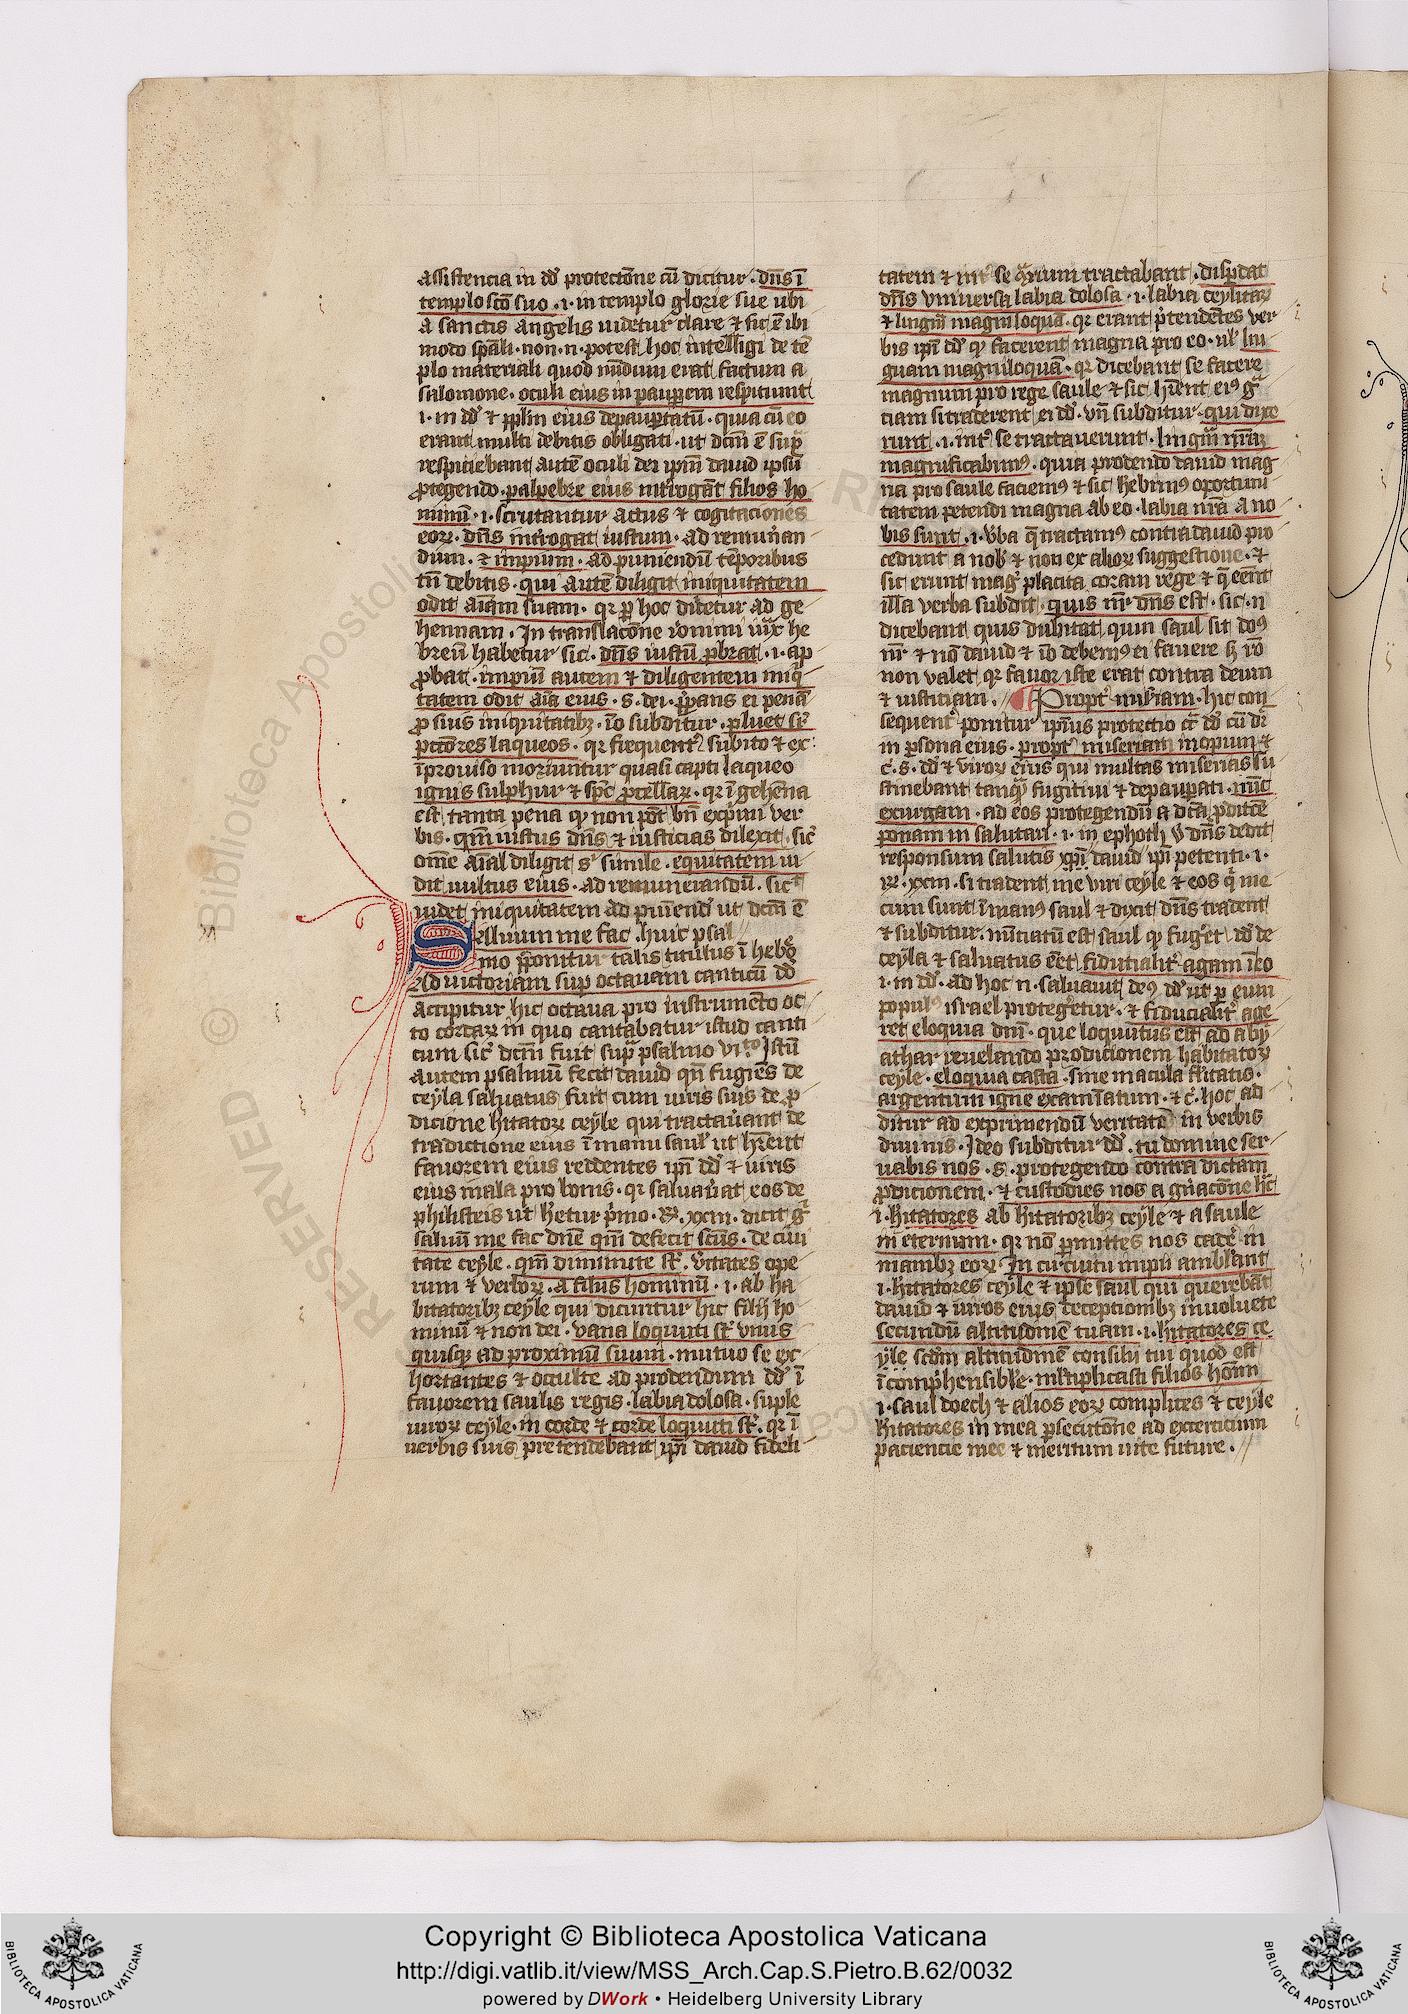 assistencia in dd protectōne cū dicitur · dn̄s ī
templo scō suo · i · in templo glorie sue ubi
a sanctis angelis uidetur clare ⁊ sic ē ibi
modo spāli · non · n · potest hoc intelligi de tē
plo materiali quod nūdum erat factum a
salomone · oculi eius in pauꝑem respiciunt
i · in dd ⁊ ꝑplm eius depauꝑtatū · quia cū eo
erant multi debitis obligati · ut dcm̄ ē supͣ
respiciebant autē oculi dei ipm̄ dauid ipsū
ꝓtegendo · palpebre eius int̾rogāt filios ho
minū · i · scrutantur actus ⁊ cogitaciones
eoꝝ · dn̄s int̾rogat iustum · ad remun̾an
dum · ⁊ impium · ad puniendū tēporibus
tn̄ debitis · qui autē diligit iniquitatem
odit aīam suam · qꝛ ꝑ hoc ducetur ad ge
hennam · In translacōne ieronimi iuxͣ he
breū habetur sic · dn̄s iustū ꝓbat · i · ap
ꝓbat · impiū autem ⁊ diligentem iniqͥ
tatem odit aīa eius · s · dei · p̄parans ei penā
ꝓ suis iniquitatibꝫ · iō subditur · pluet sr̄
pctōres laqueos · qꝛ frequent̾ subito ⁊ ex
īprouiso moriuntur quasi capti laqueo
ignis sulphur ⁊ spc̄ ꝓcellaꝝ · qꝛ ī gehēna
est tanta pena qꝫ non pōt bn̄ expͥmi ver
bis · qm̄ iustus dn̄s ⁊ iusticias dilexit · sic̾
ome aīal diligit sͥ simile · equitatem ui
dit uultus eius · ad remunerandū · sic̾
uidet iniquitatem ad puniend̾ ut dcm̄ ē
Saluum me fac · huic psal
mo p̄ponitur talis titulus ī hebͦ
Ad uictoriam suꝑ octauam canticū dd
accipitur hic octaua pro instrumēto oc
to cordaꝝ in quo cantabatur istud canti
cum sic̾ dcm̄ fuit supͣ psalmo viͦ · Istū
autem psalmū fecit dauid qn̄ fugiēs de
ceyla saluatus fuit cum uiris suis de ꝓ
dicione hītatoꝝ ceyle qui tractau̾ant de
traductione eius ī manu saul̾ ut hr̄ent
fauorem eius reddentes ipī dd ⁊ uiris
eius mala pro bonis · qꝛ saluau̾at eos de
philisteis ut hetur pͥmo · ℞ · xxiii · dicit gͥ
saluū me fac dn̄e qm̄ defecit scūs · de ciui
tate ceyle · qm̄ diminute st̄ · u̾itates ope
rum ⁊ verboꝝ · a filiis hominū · i · ab ha
bitatoribꝫ ceyle qui dicuntur hic filij ho
minū ⁊ non dei · vana loquuti st̄ vnus
quisqꝫ ad proximū suum · mutuo se ex
hortantes ⁊ occulte ad prodendum dd ī
fauorem saulis regis · labia dolosa · suple
uiroꝝ ceyle · in corde ⁊ corde loquuti st̄ · qꝛ ī
uerbis suis pretendebant ipī dauid fideli
tatem ⁊ int̾ se ꝯͣrium tractabant · disꝑdat
dn̄s vniuersa labia dolosa · i · labia ceylitaꝝ
⁊ linguā magniloquā · qꝛ erant p̄tendētes ver
bis ipī dd qꝫ facerent magna pro eo · ul̾ lin
guam magniloquā · qꝛ dicebant se facere
magnum pro rege saule ⁊ sic hr̄ent eiꝰ gͣ
ciam si traderent ei dd · vn̄ subditur · qui dixe
runt · i · int̾ se tractauerunt · linguā nr̄am
magnificabimꝰ · quia prodendo dauid mag
na pro saule faciemꝰ ⁊ sic hebimꝰ oportuni
tatem petendi magna ab eo · labia nr̄a a no
bis sunt · i · v̾ba q̄ tractamꝰ contra dauid pro
cedunt a nob̾ ⁊ non ex alioꝝ suggestione · ⁊
sic erunt mag̾ placita coram rege ⁊ q̄ eēnt
illa verba subdit · quis nr̄ dn̄s est · sic · n
dicebant quis dubitat quin saul sit doꝰ
nr̄ ⁊ nō dauid ⁊ iō debemꝰ ei fauere sꝫ rō
non valet qꝛ fauor iste erat contra deum
⁊ iusticiam · // ¶ Propt̾ miīam · hic con
sequent̾ ponitur ipius protectio cͥ dd cū dr̄
in ꝑsona eius · propt̾ miseriam inopum ⁊
c̾ · s · dd ⁊ viroꝝ eius qui multas miserias su
stinebant tanqͣ fugitiui ⁊ depauꝑati · nūc
exurgam · ad eos protegendū a dcā ꝓdicōe
ponam in salutari · i · in ephoth ꝟ dn̄s dedit
responsum salutis xpī dauid ipī petenti · i ·
℞ · xxiii · si tradent me viri ceyle ⁊ eos qͥ me
cum sunt ī manꝰ saul ⁊ dixit dn̄s tradent
⁊ subditur · nūtiatū est saul qꝫ fug̾et dd de
ceyla ⁊ saluatus eēt · fiducialit̾ agam ī eo
i · in dd · ad hoc · n · saluauit deꝰ dd ut ꝑ eum
populꝰ israel protegeretur · ⁊ fiducialit̾ age
ret eloquia dn̄i · que loquutus est ad aby
athar reuelando prodicionem habitatoꝝ
ceyle · eloquia casta · sine macula fl̾itatis ·
argentum igne examīatum · ⁊ c̾ · hoc ad
ditur ad exprimendū veritatē in verbis
diuinis · Ideo subditur dd · tu domine ser
uabis nos · s · protegendo contra dictam
ꝓdicionem · ⁊ custodies nos a gn̄acōne hͨ
i · hītatores ab hītatoribꝫ ceyle ⁊ a saule
in eternum · qꝛ nō ꝑmittes nos cade̾ in
manibꝫ eoꝝ · In circuitu impii ambl̾ant
i · hītatores ceyle ⁊ ipse saul qui querebāt
dauid ⁊ uiros eius deceptionibꝫ inuoluere
secundū altitudinē tuam · i · hītatores ce
yle scdm altitudinē consilii tui quod est
īcomp̄hensible · ml̾tiplicasti filios homī
i · saul doech ⁊ alios eoꝝ complices ⁊ ceyle
hītatores in mea ꝑsecutōne ad exercitium
paciencie mee ⁊ meritum uite future · //
Copyright © Biblioteca Apostolica Vaticana
http://digi.vatlib.it/view/MSS_Arch.Cap.S.Pietro.B.62/0032
powered by DWork • Heidelberg University Library
BIBLIOTECA APOSTOLICA VATICANA
BIBLIOTECA APOSTOLICA VATICANA